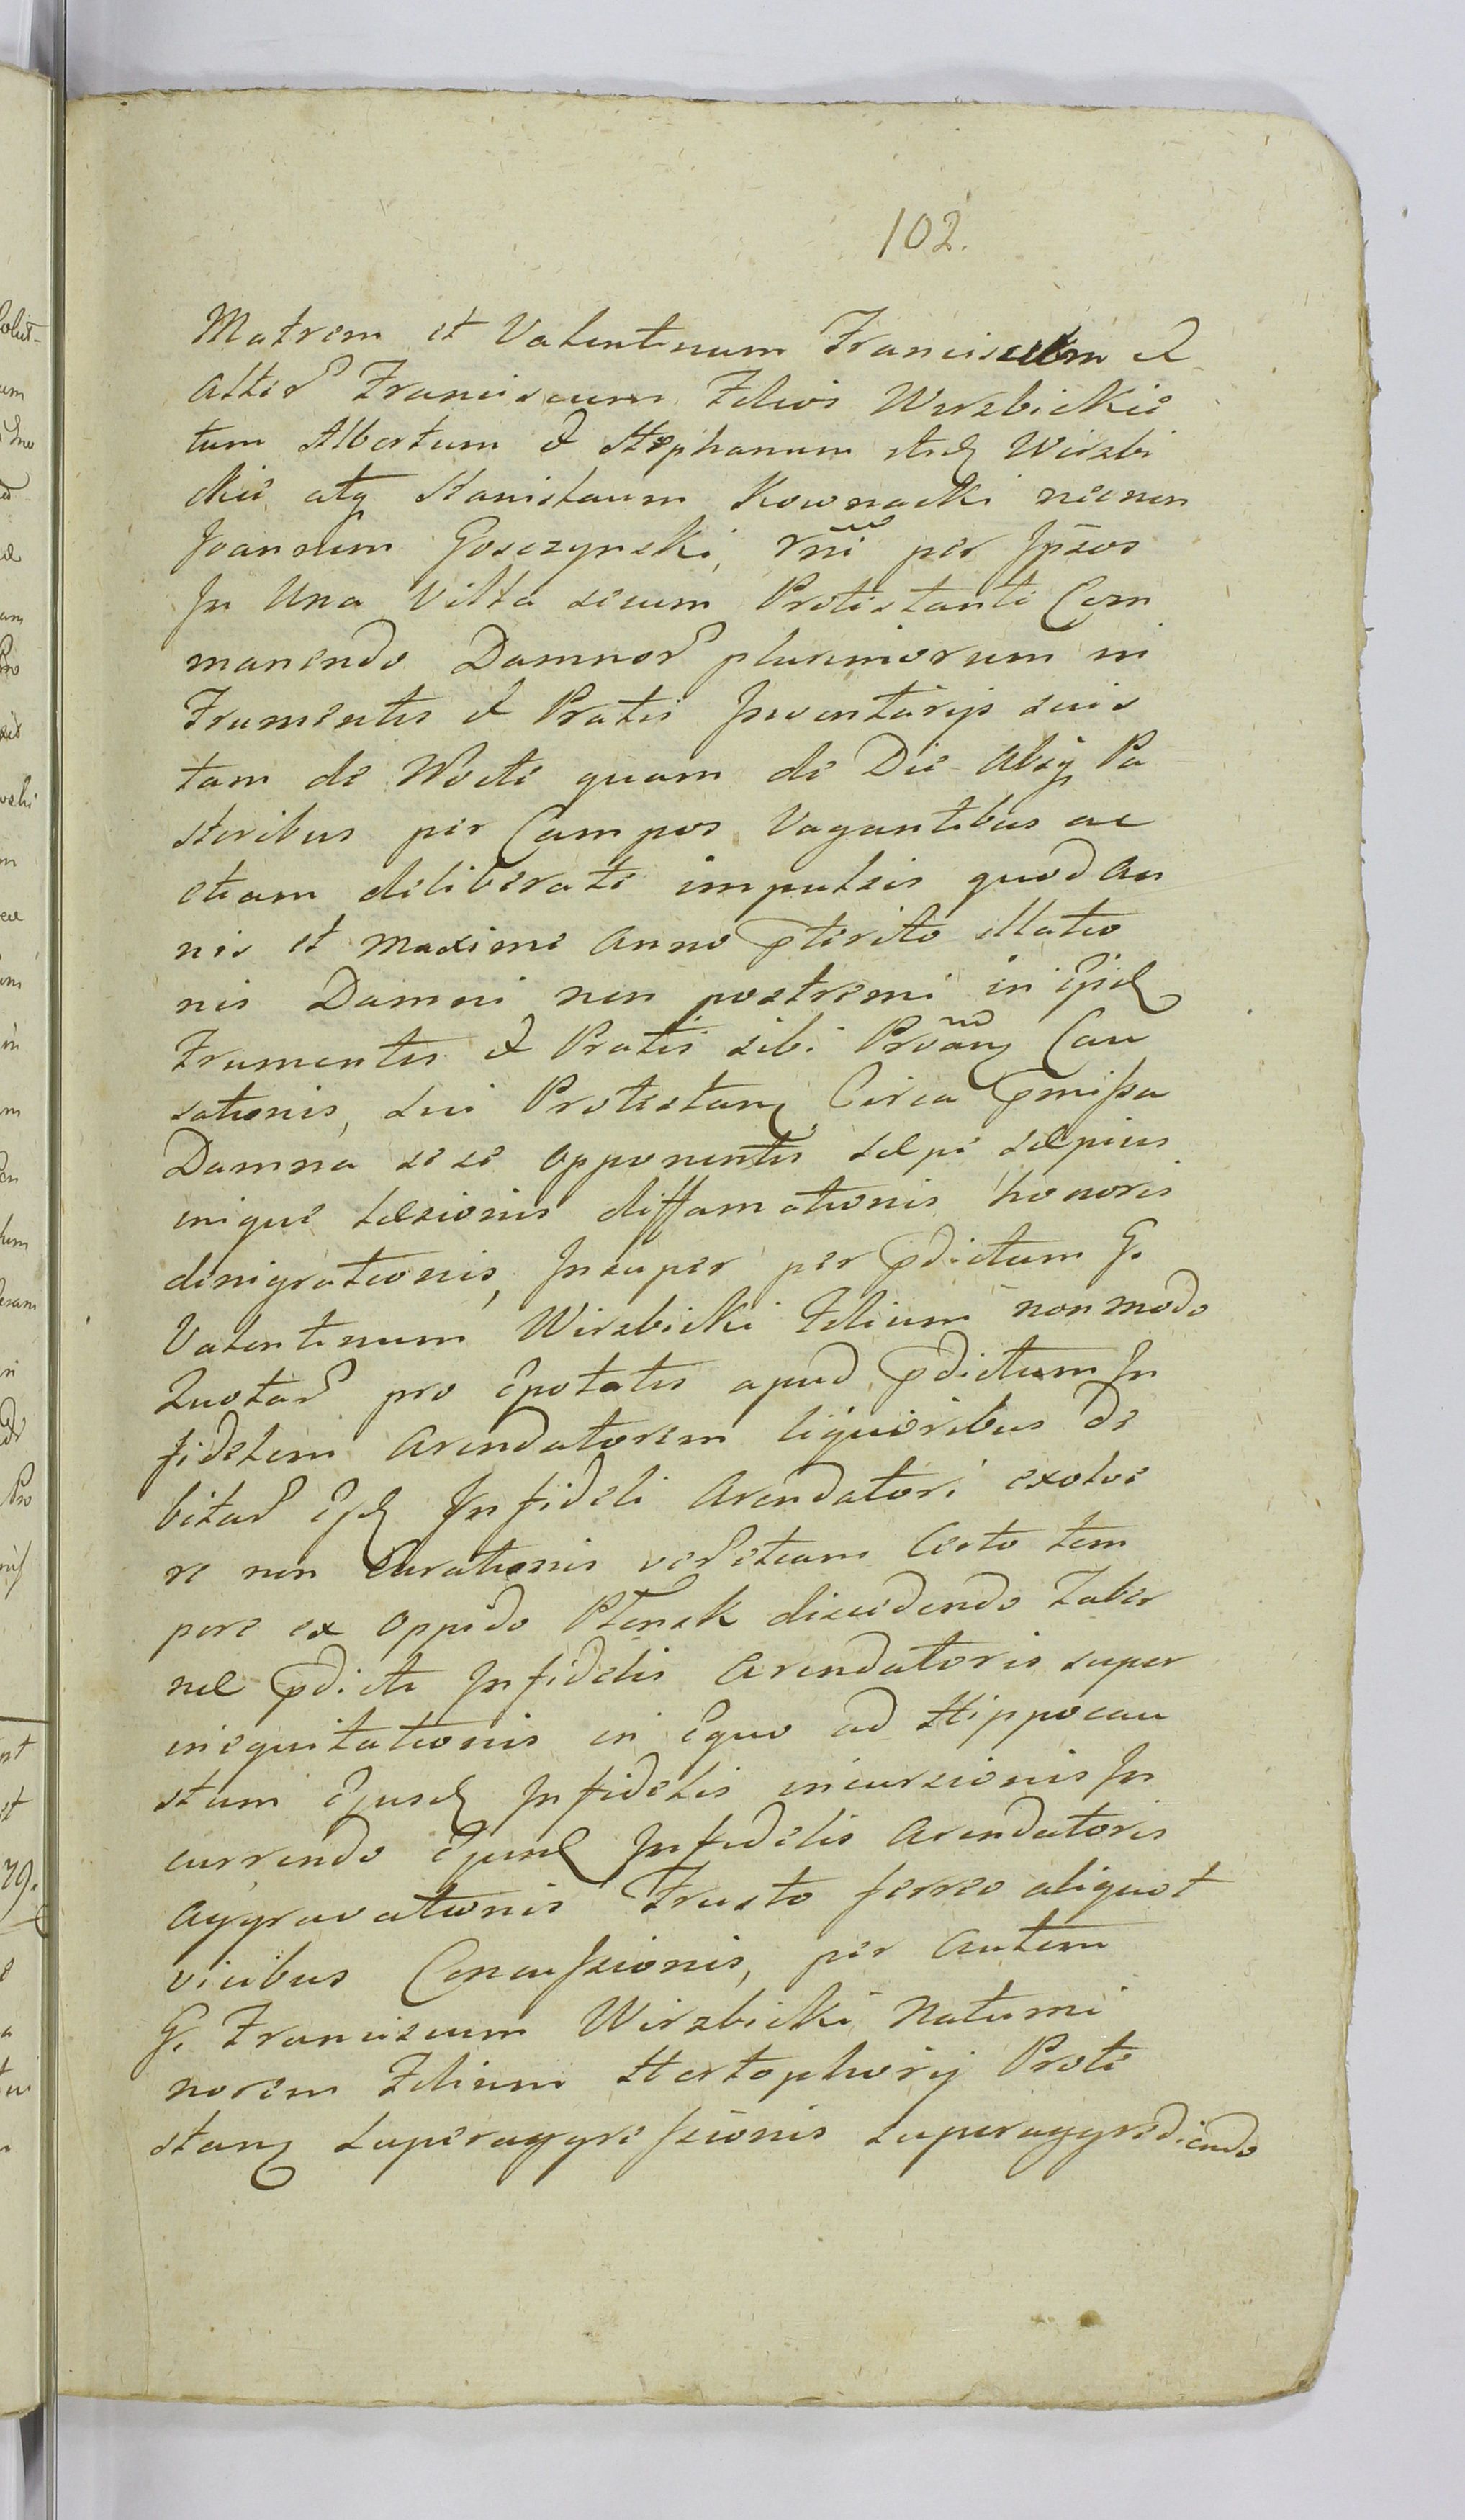 102.
Matrem et Valentinum Franciscum et
alter Franciscum Filios Wirzbickie
tum Albertum et Stephanum itid Wirzbi
ckie atq Stanislaum Kownacki necnon
Joannem Gosczynski, rñi per Jpsos
Jn Una Villa secum Protestanti Com
manendo Damnor plurimorum in
Frumentis et Pratis Jnventarijs suis
tam de Nocte quam de Die absq Pa
storibus per Campos Vagantibus ac
etiam deliberate impulsis quod an
nis et maxime anno pterito illatio
nis Damni non postremi in Ejsd
Frumentis et Pratis sibi Prõang Cau
sationis, sui Protestang Circa pmissa
Damna sese opponentis sæpe sæpius
inique læsionis diffamationis honoris
denigrationis, Jnsuper per pdictum G.
Valentinum Wirzbicki Filium non modo
Quotar pro Epotatis apud pdictum Jn
fidelem Arendatorem liquoribus de
bitar Ejd Jnfideli Arendatori exolve
re non Curationis ver etiam Certo tem
pore ex Oppido Plonsk discedendo Taber
næ pdicti Jnfidelis Arendatoris super
inequitationis in Equo ad Hippocau
stum Ejusd Jnfidelis incursionis Jn
currendo Ejusd Jnfidelis Arendatoris
aggravationis Frusto ferreo aliquot
vicibus Concussionis, per autem
G. Franciscum Wirzbicki Natumi
norem Filium Hortophorij Prote
stang superaggressionis superaggrediendo